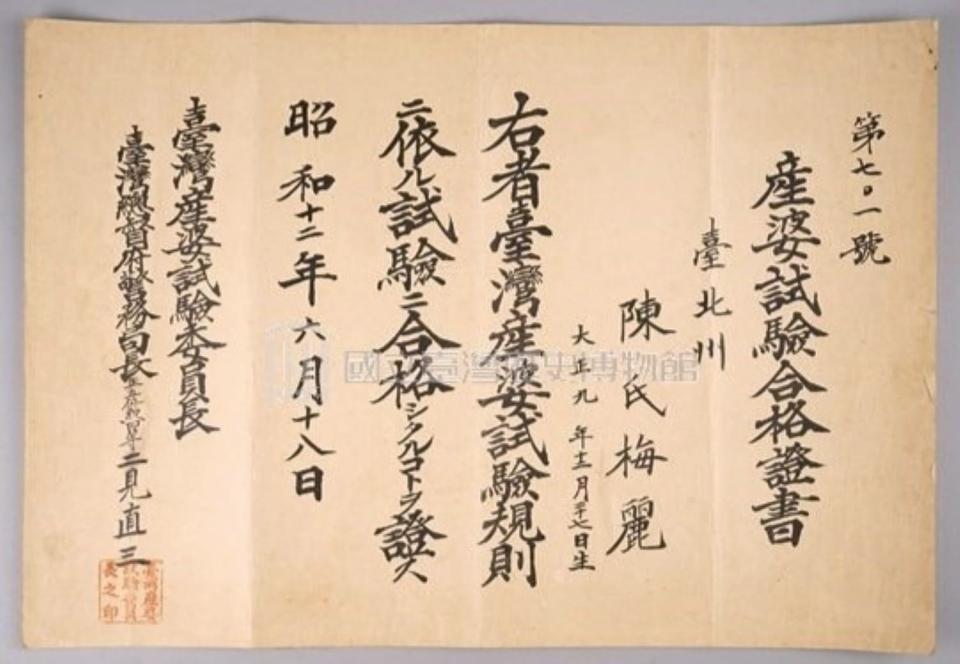 第七〇一號
産婆試驗合格證書
臺北州
陳氏梅麗
大正九年十二月廿七日生
右者臺灣産婆試驗規則
ニ依ル試驗ニ合格シタルコトヲ證ス
昭和十二年六月十八日
臺灣産婆試驗委員長
臺灣總督府警務局長正五位勳四等二見直三
國立臺灣歷史博物館